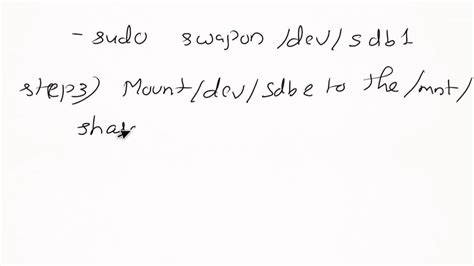 - sudo swapon /dev/sdb1
step3) Mount/dev/sdbe to the /mnt/
shar